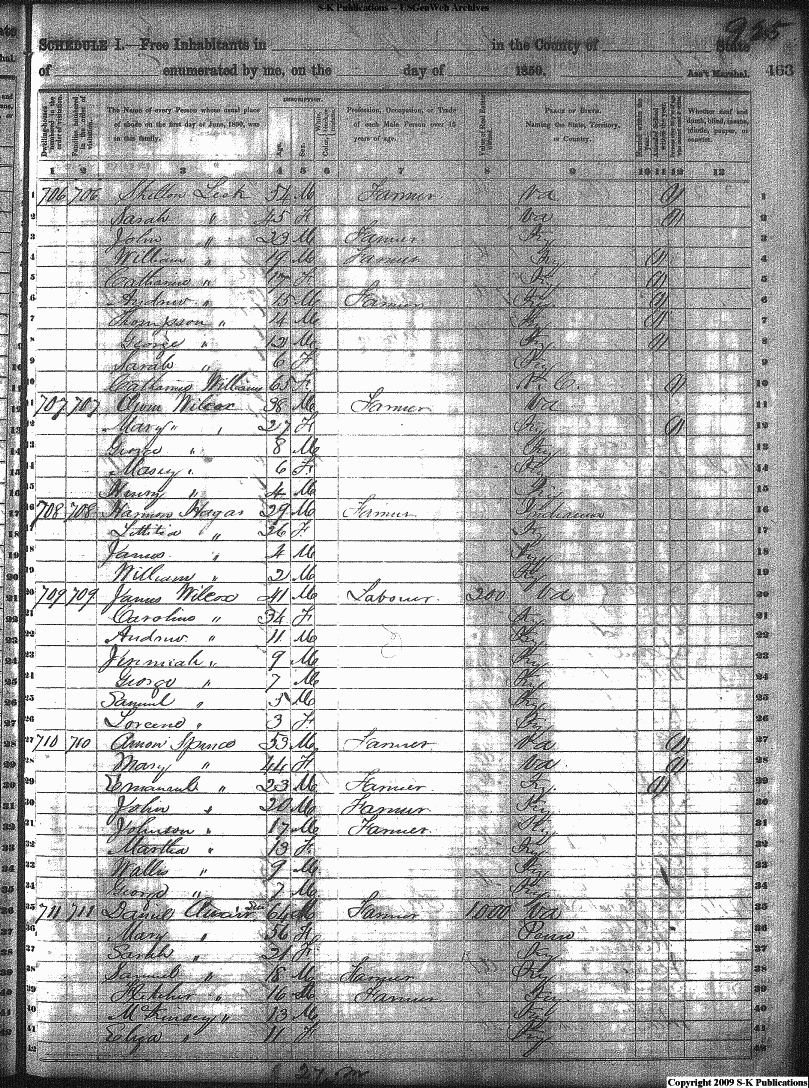 S-K Publications – USGenWeb Archives
925
SCHEDULE I.—Free Inhabitants in in the County of State
of enumerated by me, on the day of 1850. Ass't Marshal. 463
The Name of every Person whose usual place of abode on the first day of June, 1850, was in this family.
DESCRIPTION.
Age.
Sex.
Profession, Occupation, or Trade of each Male Person over 15 years of age.
Value of Real Estate owned.
PLACE OF BIRTH. Naming the State, Territory, or Country.
Whether deaf and dumb, blind, insane, idiotic, pauper, or convict.
1 2 3 4 5 6 7 8 9 10 11 12 13
1 706 706 Skelton Lesk 54 M Farmer Va 1 1
Sarah " 45 F Va 1 2
John " 23 M Farmer Ky 3
William " 19 M Farmer Ky 1 4
Catharine " 17 F Ky 1 5
Andrew " 15 M Farmer Ky 1 6
Thompson " 14 M Ky 1 7
George " 12 M Ky 1 8
Sarah " 6 F Ky 9
Catharine Williams 65 F N. C. 1 10
707 707 Wilcox 38 M Farmer Va 11
Mary " 27 F Ky 1 12
George " 8 M Ky 13
" 6 F Ky 14
Henry " 4 M Ky 15
708 708 Harmon Hagar 29 M Farmer Indiana 16
Lettitia " 36 F Ky 17
James " 4 M Ky 18
William " 2 M Ky 19
709 709 James Wilcox 41 M Labourer 200 Va 20
Caroline " 34 F Ky 21
Andrew " 11 M Ky 22
Jeremiah " 9 M Ky 23
George " 7 M Ky 24
Samuel " 5 M Ky 25
" 3 F Ky 26
710 710 53 M Farmer Va 1 27
Mary " 44 F Va 1 28
Emanuel " 23 M Farmer Ky 1 29
John " 20 M Farmer Ky 30
Johnson " 17 M Farmer Ky 31
Martha " 13 F Ky 32
Wallis " 9 M Ky 33
George " 7 M Ky 34
711 711 Daniel 64 M Farmer 1000 Va 35
Mary " 56 F Penn 36
Sarah " 21 F Ky 37
Samuel " 18 M Farmer Ky 38
Fletcher " 16 M Farmer Ky 39
McKinsey " 13 M Ky 40
Eliza " 11 F Ky 41
42
Copyright 2009 S-K Publications